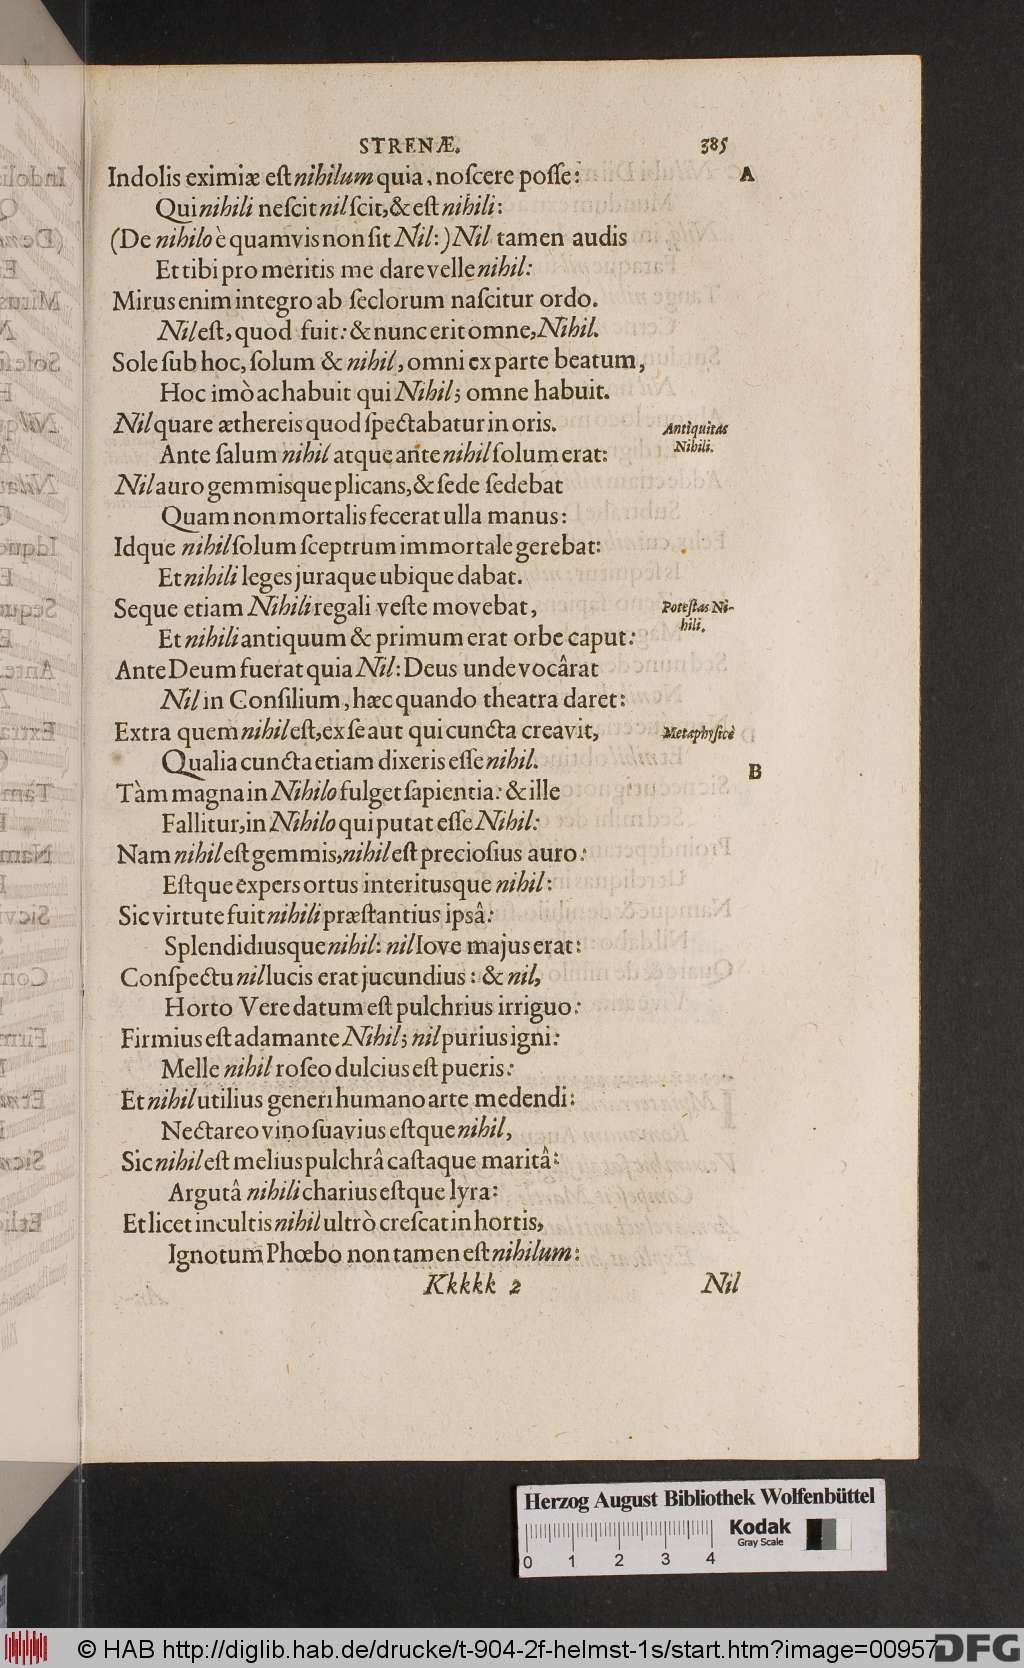 STRENÆ. 385
Indolis eximiæ eſt nihilum quia, noſcere poſſe: A
Qui nihili neſcit nil ſcit, & eſt nihili:
(De nihilo è quamvis non ſit Nil:) Nil tamen audis
Et tibi pro meritis me dare velle nihil:
Mirus enim integro ab ſeclorum naſcitur ordo.
Nil eſt, quod fuit: & nunc erit omne, Nihil.
Sole ſub hoc, ſolum & nihil, omni ex parte beatum,
Hoc imò ac habuit qui Nihil; omne habuit.
Nil quare æthereis quod ſpectabatur in oris. Antiquitas
Nihili.
Ante ſalum nihil atque ante nihil ſolum erat:
Nil auro gemmisque plicans, & ſede ſedebat
Quam non mortalis fecerat ulla manus:
Idque nihil ſolum ſceptrum immortale gerebat:
Et nihili leges juraque ubique dabat.
Seque etiam Nihili regali veſte movebat, Poteſtas Ni-
hili.
Et nihili antiquum & primum erat orbe caput:
Ante Deum fuerat quia Nil: Deus unde vocârat
Nil in Conſilium, hæc quando theatra daret:
Extra quem nihil eſt, ex ſe aut qui cuncta creavit, Metaphyſicè
Qualia cuncta etiam dixeris eſſe nihil. B
Tàm magna in Nihilo fulget ſapientia: & ille
Fallitur, in Nihilo qui putat eſſe Nihil:
Nam nihil eſt gemmis, nihil eſt precioſius auro:
Eſtque expers ortus interitusque nihil:
Sic virtute fuit nihili præſtantius ipsâ:
Splendidiusque nihil: nil Iove majus erat:
Conſpectu nil lucis erat jucundius: & nil,
Horto Vere datum eſt pulchrius irriguo:
Firmius eſt adamante Nihil; nil purius igni:
Melle nihil roſeo dulcius eſt pueris:
Et nihil utilius generi humano arte medendi:
Nectareo vino ſuavius eſtque nihil,
Sic nihil eſt melius pulchrâ caſtaque maritâ:
Argutâ nihili charius eſtque lyra:
Et licet incultis nihil ultrò creſcat in hortis,
Ignotum Phœbo non tamen eſt nihilum:
Kkkkk 2 Nil
Herzog August Bibliothek Wolfenbüttel
Kodak
Gray Scale
0 1 2 3 4
© HAB http://diglib.hab.de/drucke/t-904-2f-helmst-1s/start.htm?image=00957
DFG